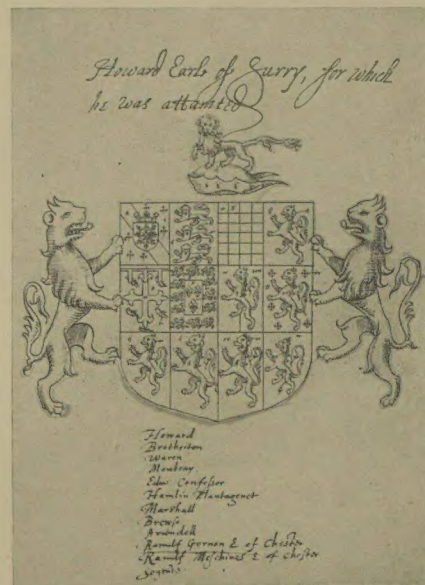 Howard Earle of Surry, for which
he was attainted
Howard
Brotherton
Waren
Mowbray
Edw Confessor
Hamlin Plantagenet
Marshall
Brewse
Arundell
Ranulf Gernon E of Chester
Ranulf Meschines E of Chester